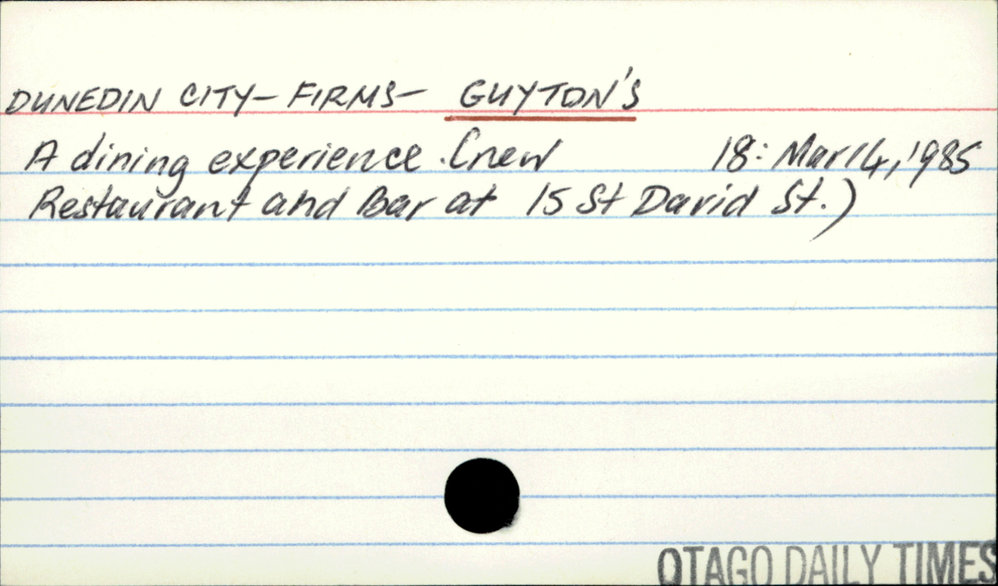 DUNEDIN CITY- FIRMS- GUYTON'S
A dining experience. (new 18: Mar 14, 1985
Restaurant and Bar at 15 St David St.)
OTAGO DAILY TIMES